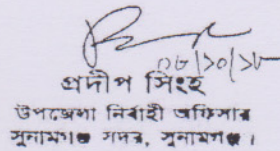 ০৮/১০/১৮
প্রদীপ সিংহ
উপজেলা নির্বাহী অফিসার
সুনামগঞ্জ সদর, সুনামগঞ্জ।